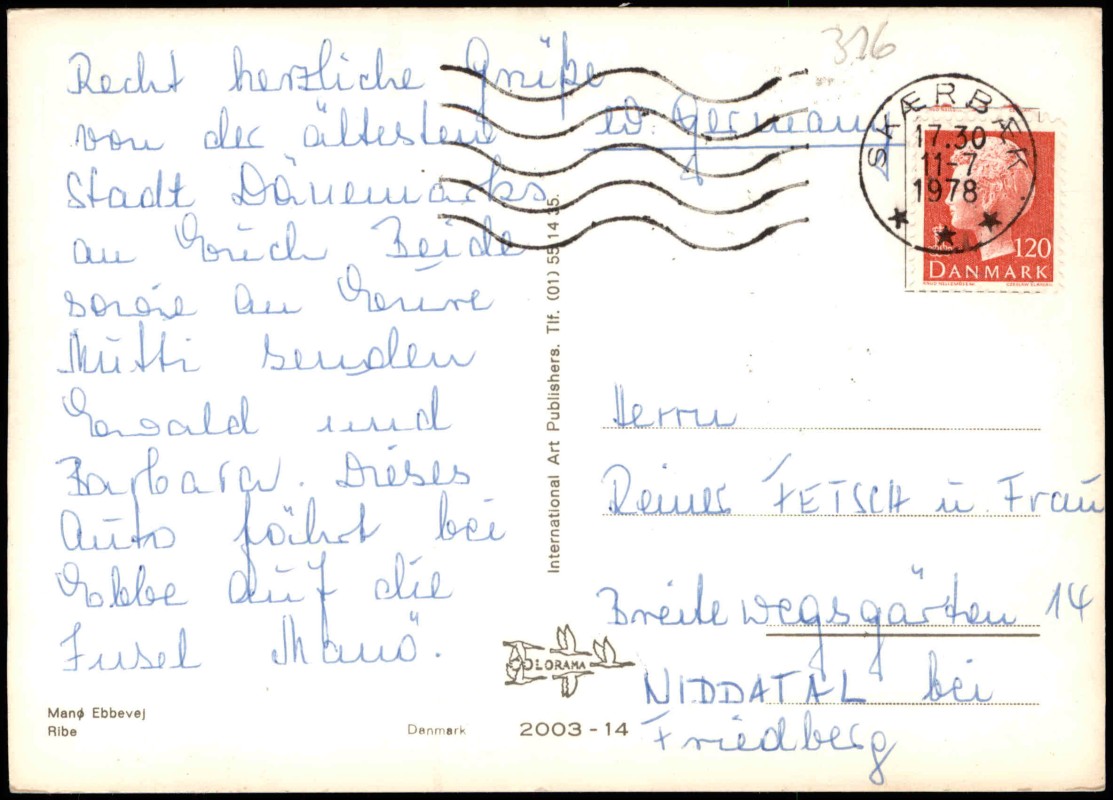 316
Recht herzliche Grüße
von der ältesten
Stadt Dänemarks
an Euch Beide
sowie an Eure
Mutti senden
Ewald und
Barbara. Dieses
Auto fährt bei
Ebbe auf die
Insel Manö.
Manø Ebbevej
Ribe
Danmark
2003-14
COLORAMA
International Art Publishers. Tlf. (01) 55 14 35.
W. Germany
SKÆRBÆK
17.30
11-7
1978
120
DANMARK
Herrn
Reiner FETSCH u. Frau
Breite wegsgärten 14
NIDDATAL bei
Friedberg